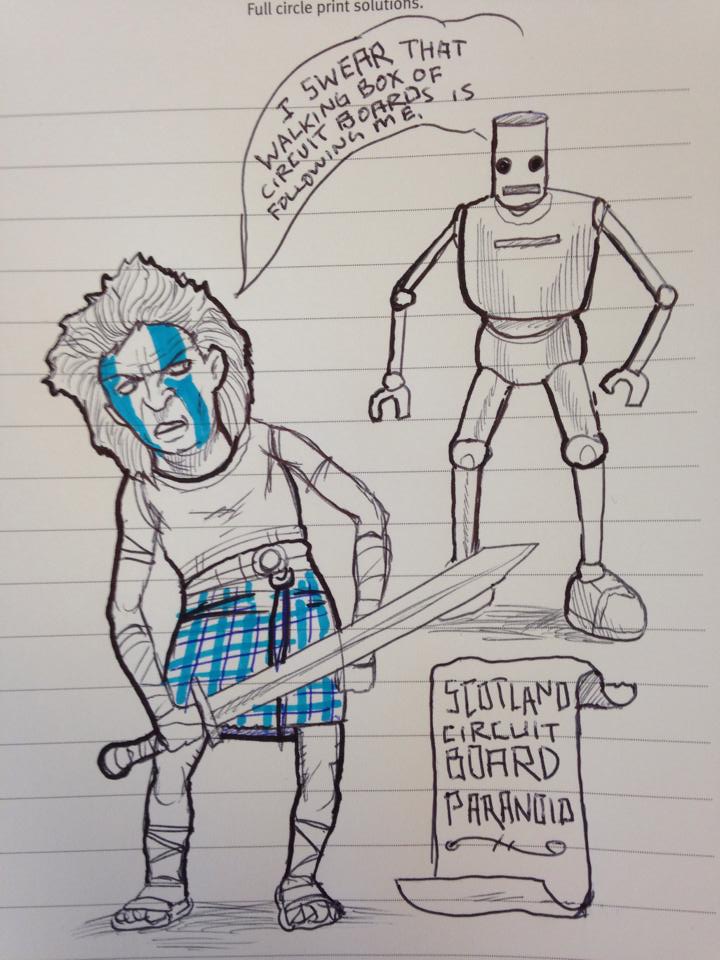 Full circle print solutions.
I SWEAR THAT
WALKING BOX OF
CIRCUIT BOARDS IS
FOLLOWING ME.
SCOTLAND
CIRCUIT
BOARD
PARANOID